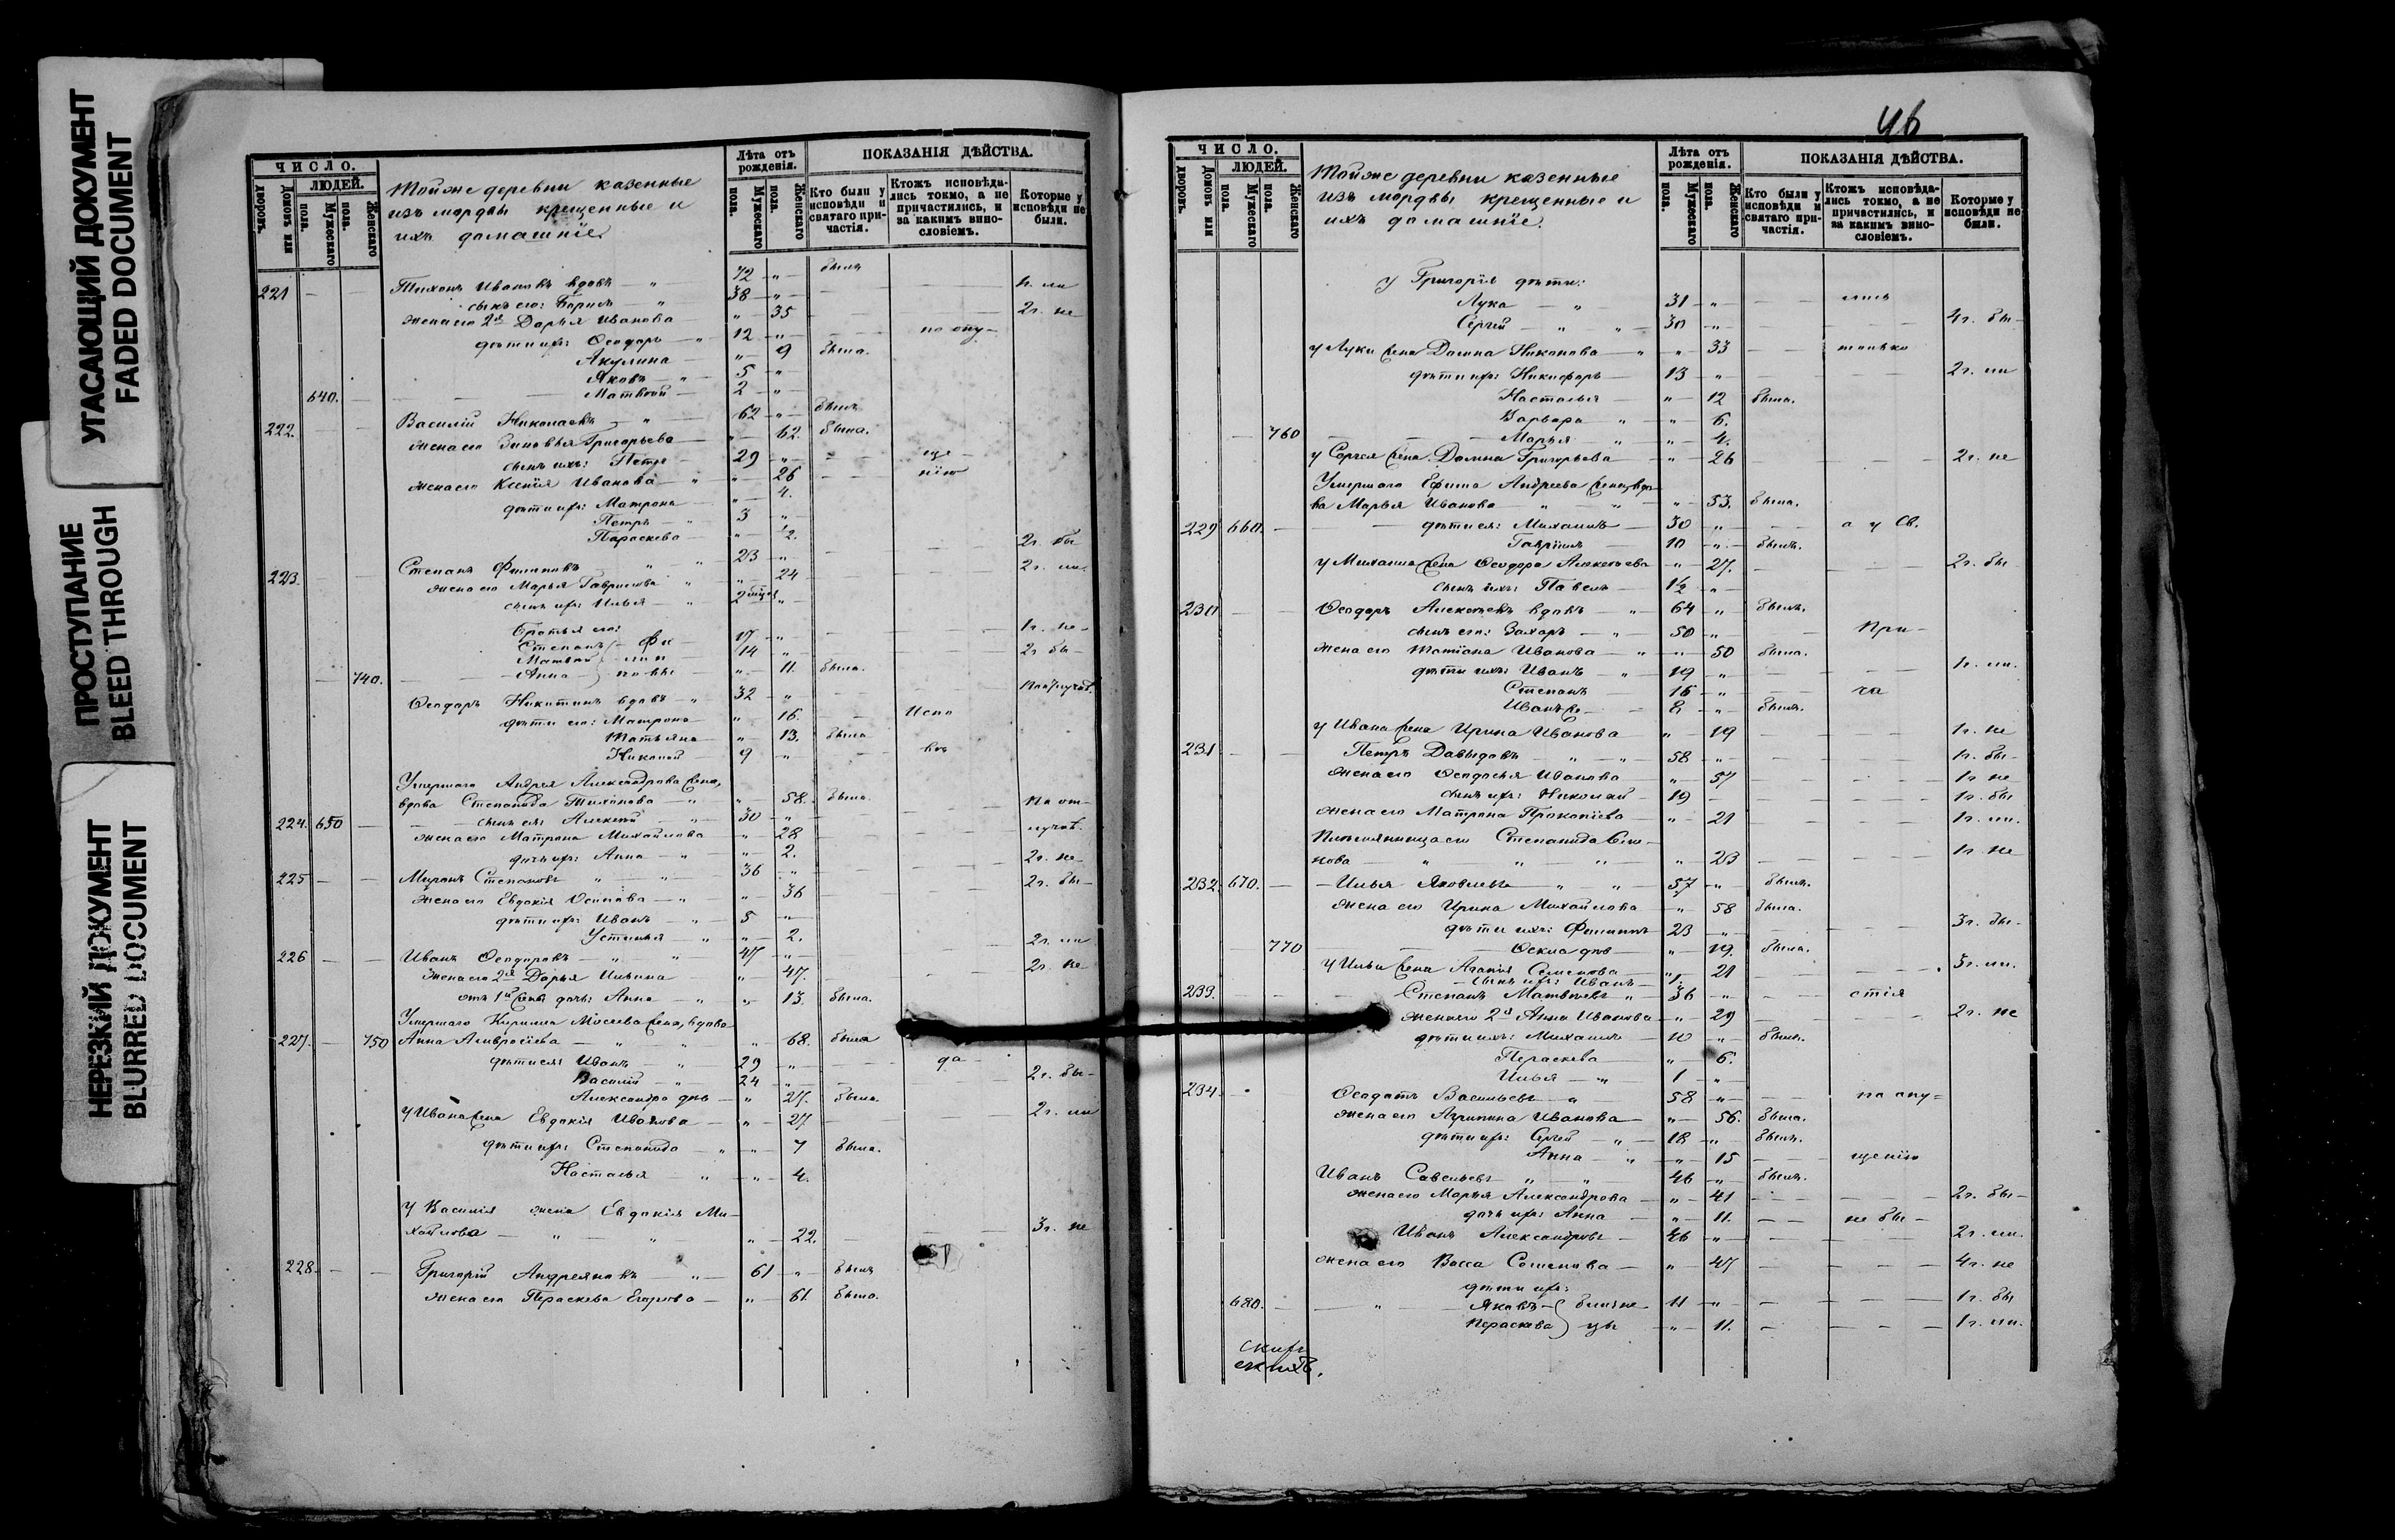 УГАСАЮЩИЙ ДОКУМЕНТ
FADED DOCUMENT
ПРОСТУПАНИЕ
BLEED THROUGH
НЕРЕЗКИЙ ДОКУМЕНТ
BLURRED DOCUMENT
ЧИСЛО.
ЛЮДЕЙ.
Домовъ или дворовъ.
Мужескаго пола.
Женскаго пола.
Тойже деревни казенные
изъ мордвы крещенные и
ихъ домашніе
Лѣта отъ рожденія.
Мужескаго пола.
Женскаго пола.
ПОКАЗАНІЯ ДѢЙСТВА.
Кто были у исповѣди и святаго причастія.
Ктожъ исповѣдались токмо, а не причастились, и за какимъ винословіемъ.
Которые у исповѣди не были.
221 Тихонъ Ивановъ вдовъ — " 72 " былъ
сынъ его: Борисъ — " 38 "
жена его 2я Дарья Иванова " 35 2г. не
дѣти ихъ: Ѳеодоръ — " 12 " по опу-
Акулина — " 9 была.
Яковъ — " 5 "
640. Матвѣй — 2 "
222. Василій Николаевъ " 62 " былъ
жена его Зиновья Григорьева — " 62. была.
сынъ ихъ: Петръ — 29 " ще-
жена его Ксенія Иванова — " " 26 нію
дѣти ихъ: Матрона — " 4.
Петръ — " 3 "
Параскева — " ½.
223. Степанъ Филиповъ " " 23 " 2г. бы
жена его Марья Гаврилова " " 24 2г. ли.
сынъ ихъ: Илья — " 2 "
Братья его:
Степанъ 17 " 1г. не-
Матвѣй 14 " 2г. бы-
740. Анна " 11. была.
Ѳеодоръ Никитинъ вдовъ — " 32 "
дѣти его: Матрона — " 16. Испо
Татьяна — " 13. была
Николай — 9 "
Умершаго Андрея Александрова жена,
вдова Степанида Тихонова — " " 58. была. По от-
224. 650 сынъ ея: Алексѣй — " 30 " лучкѣ.
жена его Матрона Михайлова " 28
дочь ихъ: Анна — " " 2. 2г. не-
225 Миронъ Степановъ " " 36 " 2г. бы-
жена его Евдокія Осипова — " " 36
дѣти ихъ: Иванъ — " 5 "
Устинья — " " 2.
226 Иванъ Ѳеодоровъ — " " 47 " 2г. ли
жена его 2я Дарья Ильина " 47. 2г. не-
отъ 1й жены дочь: Анна — " " 13. была.
Умершаго Кирилла Мосеева жена, вдова
227. 750 Анна Амвросіева — " " " 68. была
дѣти ея: Иванъ " 29 " да-
Василій — " 24 " 2г. бы-
Александра дѣв — " 27. была.
У Ивана жена Евдокія Иванова — " 27 2г. ли
дѣти ихъ: Степанида " " 7 была.
Настасья " " 4.
У Василія жена Евдокія Ми-
хайлова — " " " 22. 3г. не
228. Григорій Андреяновъ — " 61 " былъ
жена его Параскева Егорова — " 61. была.
46
ЧИСЛО.
ЛЮДЕЙ.
Домовъ или дворовъ.
Мужескаго пола.
Женскаго пола.
Тойже деревни казенные
изъ мордвы крещенные и
ихъ домашніе.
Лѣта отъ рожденія.
Мужескаго пола.
Женскаго пола.
ПОКАЗАНІЯ ДѢЙСТВА.
Кто были у исповѣди и святаго причастія.
Ктожъ исповѣдались токмо, а не причастились, и за какимъ винословіемъ.
Которые у исповѣди не были.
У Григорія дѣти:
Лука — " 31 " лись
Сергѣй — " " 30 " 4г. бы-
У Луки жена Домна Никонова — " " 33 только
дѣти ихъ: Никифоръ — 13 " 2г. ли
Настасья — " 12 была.
Варвара — " " 6.
760 Марья — " " 4.
у Сергея жена Домна Григорьева — " 26 2г. не
Умершаго Ефима Андреева жена, вдо-
ва Марья Иванова — " " " 53. была.
229 660. дѣти ея: Михаилъ — 30 " а у Св.
Гавріилъ — 10 " былъ.
У Михаила жена Ѳеодора Алексѣева " 27. 2г. бы-
сынъ ихъ: Павелъ — 1½ "
230 Ѳеодоръ Алексѣевъ вдовъ — " 64 " былъ.
сынъ его: Захаръ — " 50 " При-
жена его Татіана Иванова — " " 50 была.
дѣти ихъ: Иванъ — " 19 " 1г. ли.
Степанъ 16 " ча
8 " былъ.
У Ивана жена Ирина Иванова " 19 1г. не
231 Петръ Давыдовъ — " " 58 " 1г. бы-
жена его Ѳеодосья Иванова — " 57 1г. не
сынъ ихъ: Николай — 19 1г. бы
жена его Матрона Прокопіева — " 21 1г. ли.
Племянница его Степанида Семе-
нова — " " " " 23 1г. не
232. 670. Илья Яковлевъ — " " 57 " былъ.
жена его Ирина Михайлова " 58 была.
дѣти ихъ: Филиппъ 23 " 3г. бы-
770 " 19. была.
У Ильи жена Агапія Семенова — " 21 3г. ли.
сынъ ихъ: Иванъ — 1.
233. Степанъ Матвѣевъ " 36 " стія
жена его 2я Анна Иванова " 29 2г. не
дѣти ихъ: Михаилъ 10 " былъ.
Параскева " 6.
Илья — " 1 "
234. Ѳеодотъ Васильевъ — " 58 " по опу=
жена его Агрипина Иванова — " 56. была.
дѣти ихъ: Сергѣй — " 18 " былъ.
Анна — " " 15 щенію
Иванъ Савельевъ " " 46 " былъ.
жена его Марья Александрова — " 41 2г. бы-
дочь ихъ: Анна — " 11. не бы-
Иванъ Александровъ — 46 " 2г. ли.
жена его Васса Семенова — " 47 4г. не
дѣти ихъ:
680. " Яковъ близне- 11 " 1г. бы
Параскева цы " 11. 1г. ли.